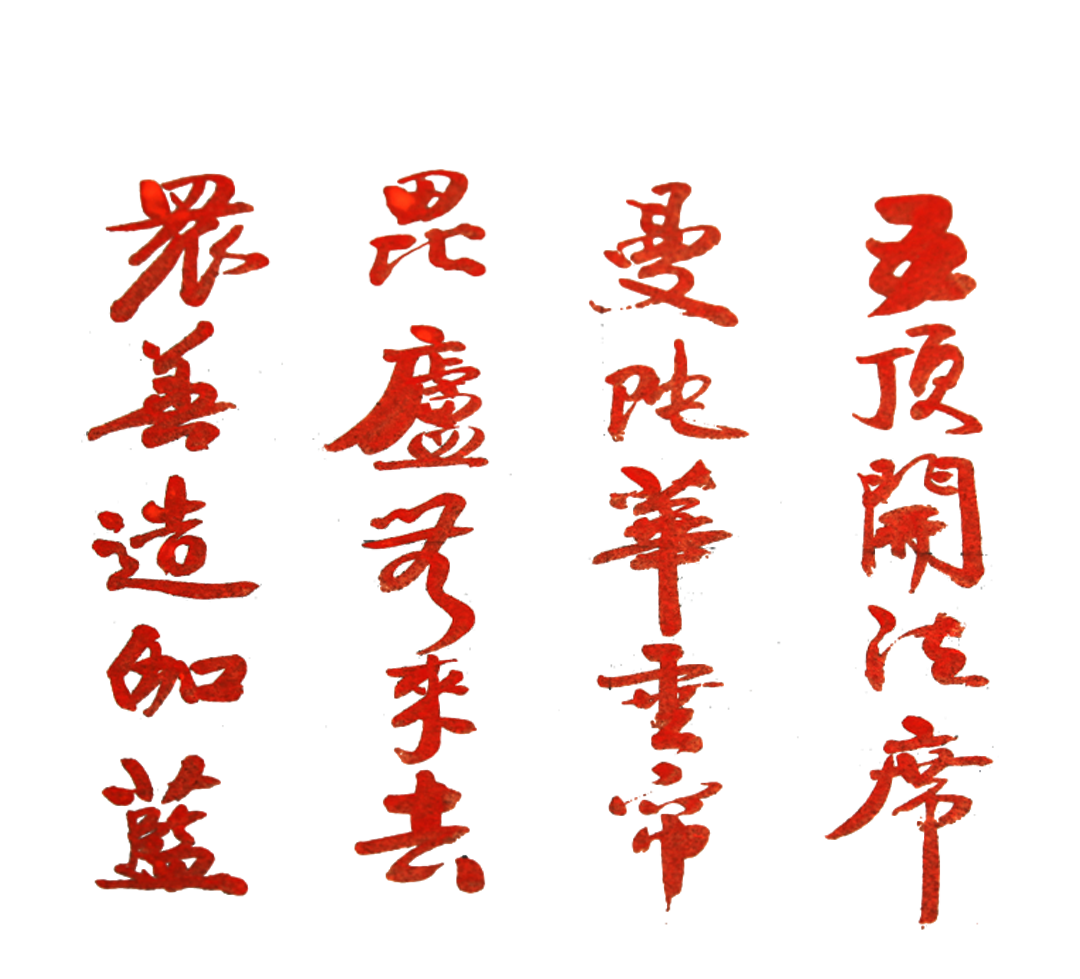 五頂開法席
曼陀華雨帝
毘盧无來去
眾善造伽藍